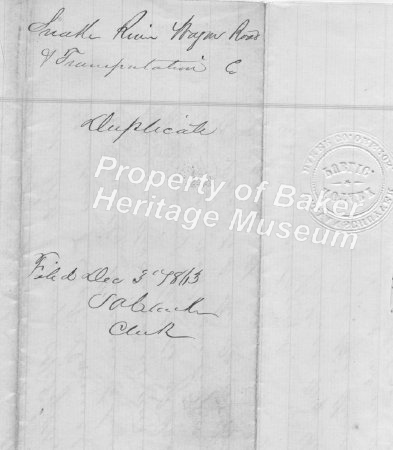 Snake River Wagon Road
& Transportation Co
Duplicate
Property of Baker
Heritage Museum
Filed Dec 3rd 1863
Clerk